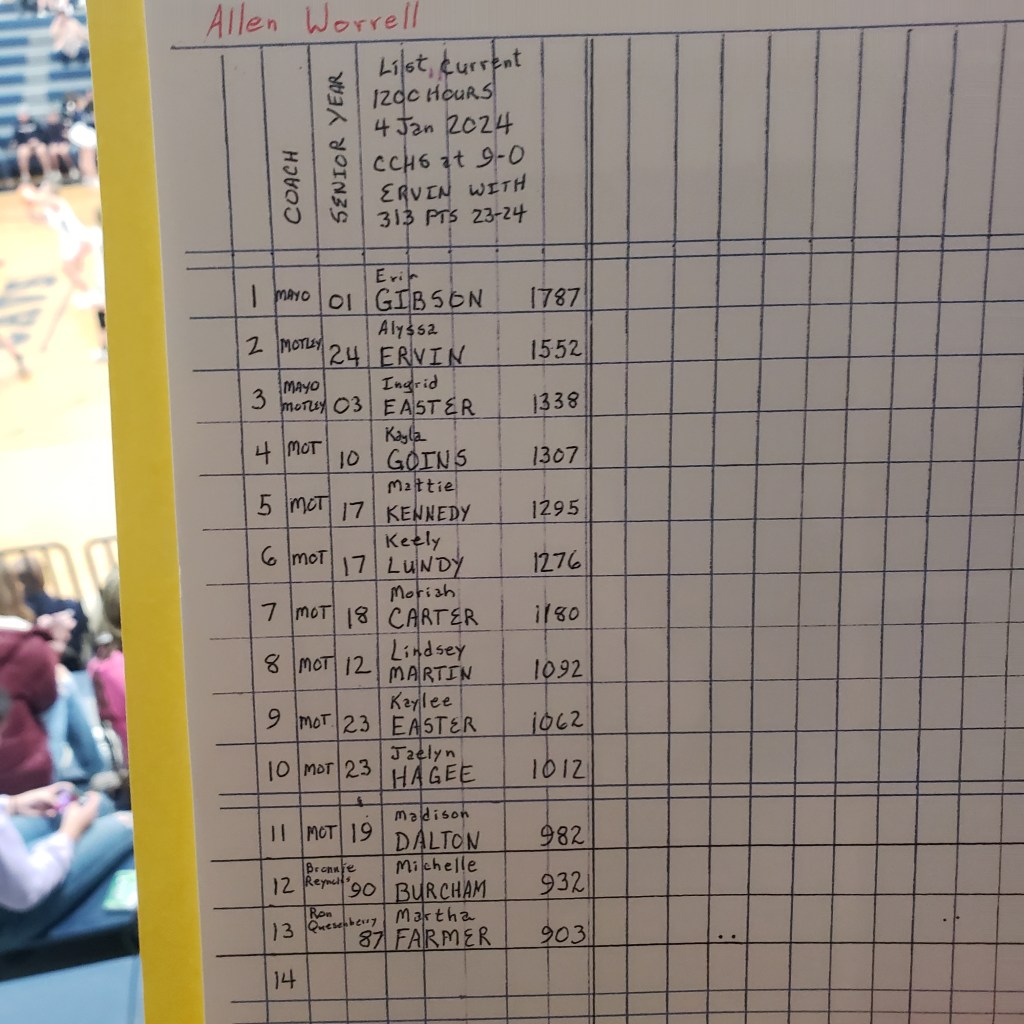 Allen Worrell
COACH
SENIOR YEAR
List, Current
1200 HOURS
4 Jan 2024
CCHS at 9-0
ERVIN WITH
313 PTS 23-24
1 MAYO 01 Erin GIBSON 1787
2 MOTLEY 24 Alyssa ERVIN 1552
3 MAYO MOTLEY 03 Ingrid EASTER 1338
4 MOT 10 Kayla GOINS 1307
5 MOT 17 Mattie KENNEDY 1295
6 MOT 17 Keely LUNDY 1276
7 MOT 18 Moriah CARTER 1180
8 MOT 12 Lindsey MARTIN 1092
9 MOT. 23 Kaylee EASTER 1062
10 MOT 23 Jaelyn HAGEE 1012
11 MOT 19 Madison DALTON 982
12 Bronnie Reynolds 90 Michelle BURCHAM 932
13 Ron Quesenberry 87 Martha FARMER 903
14